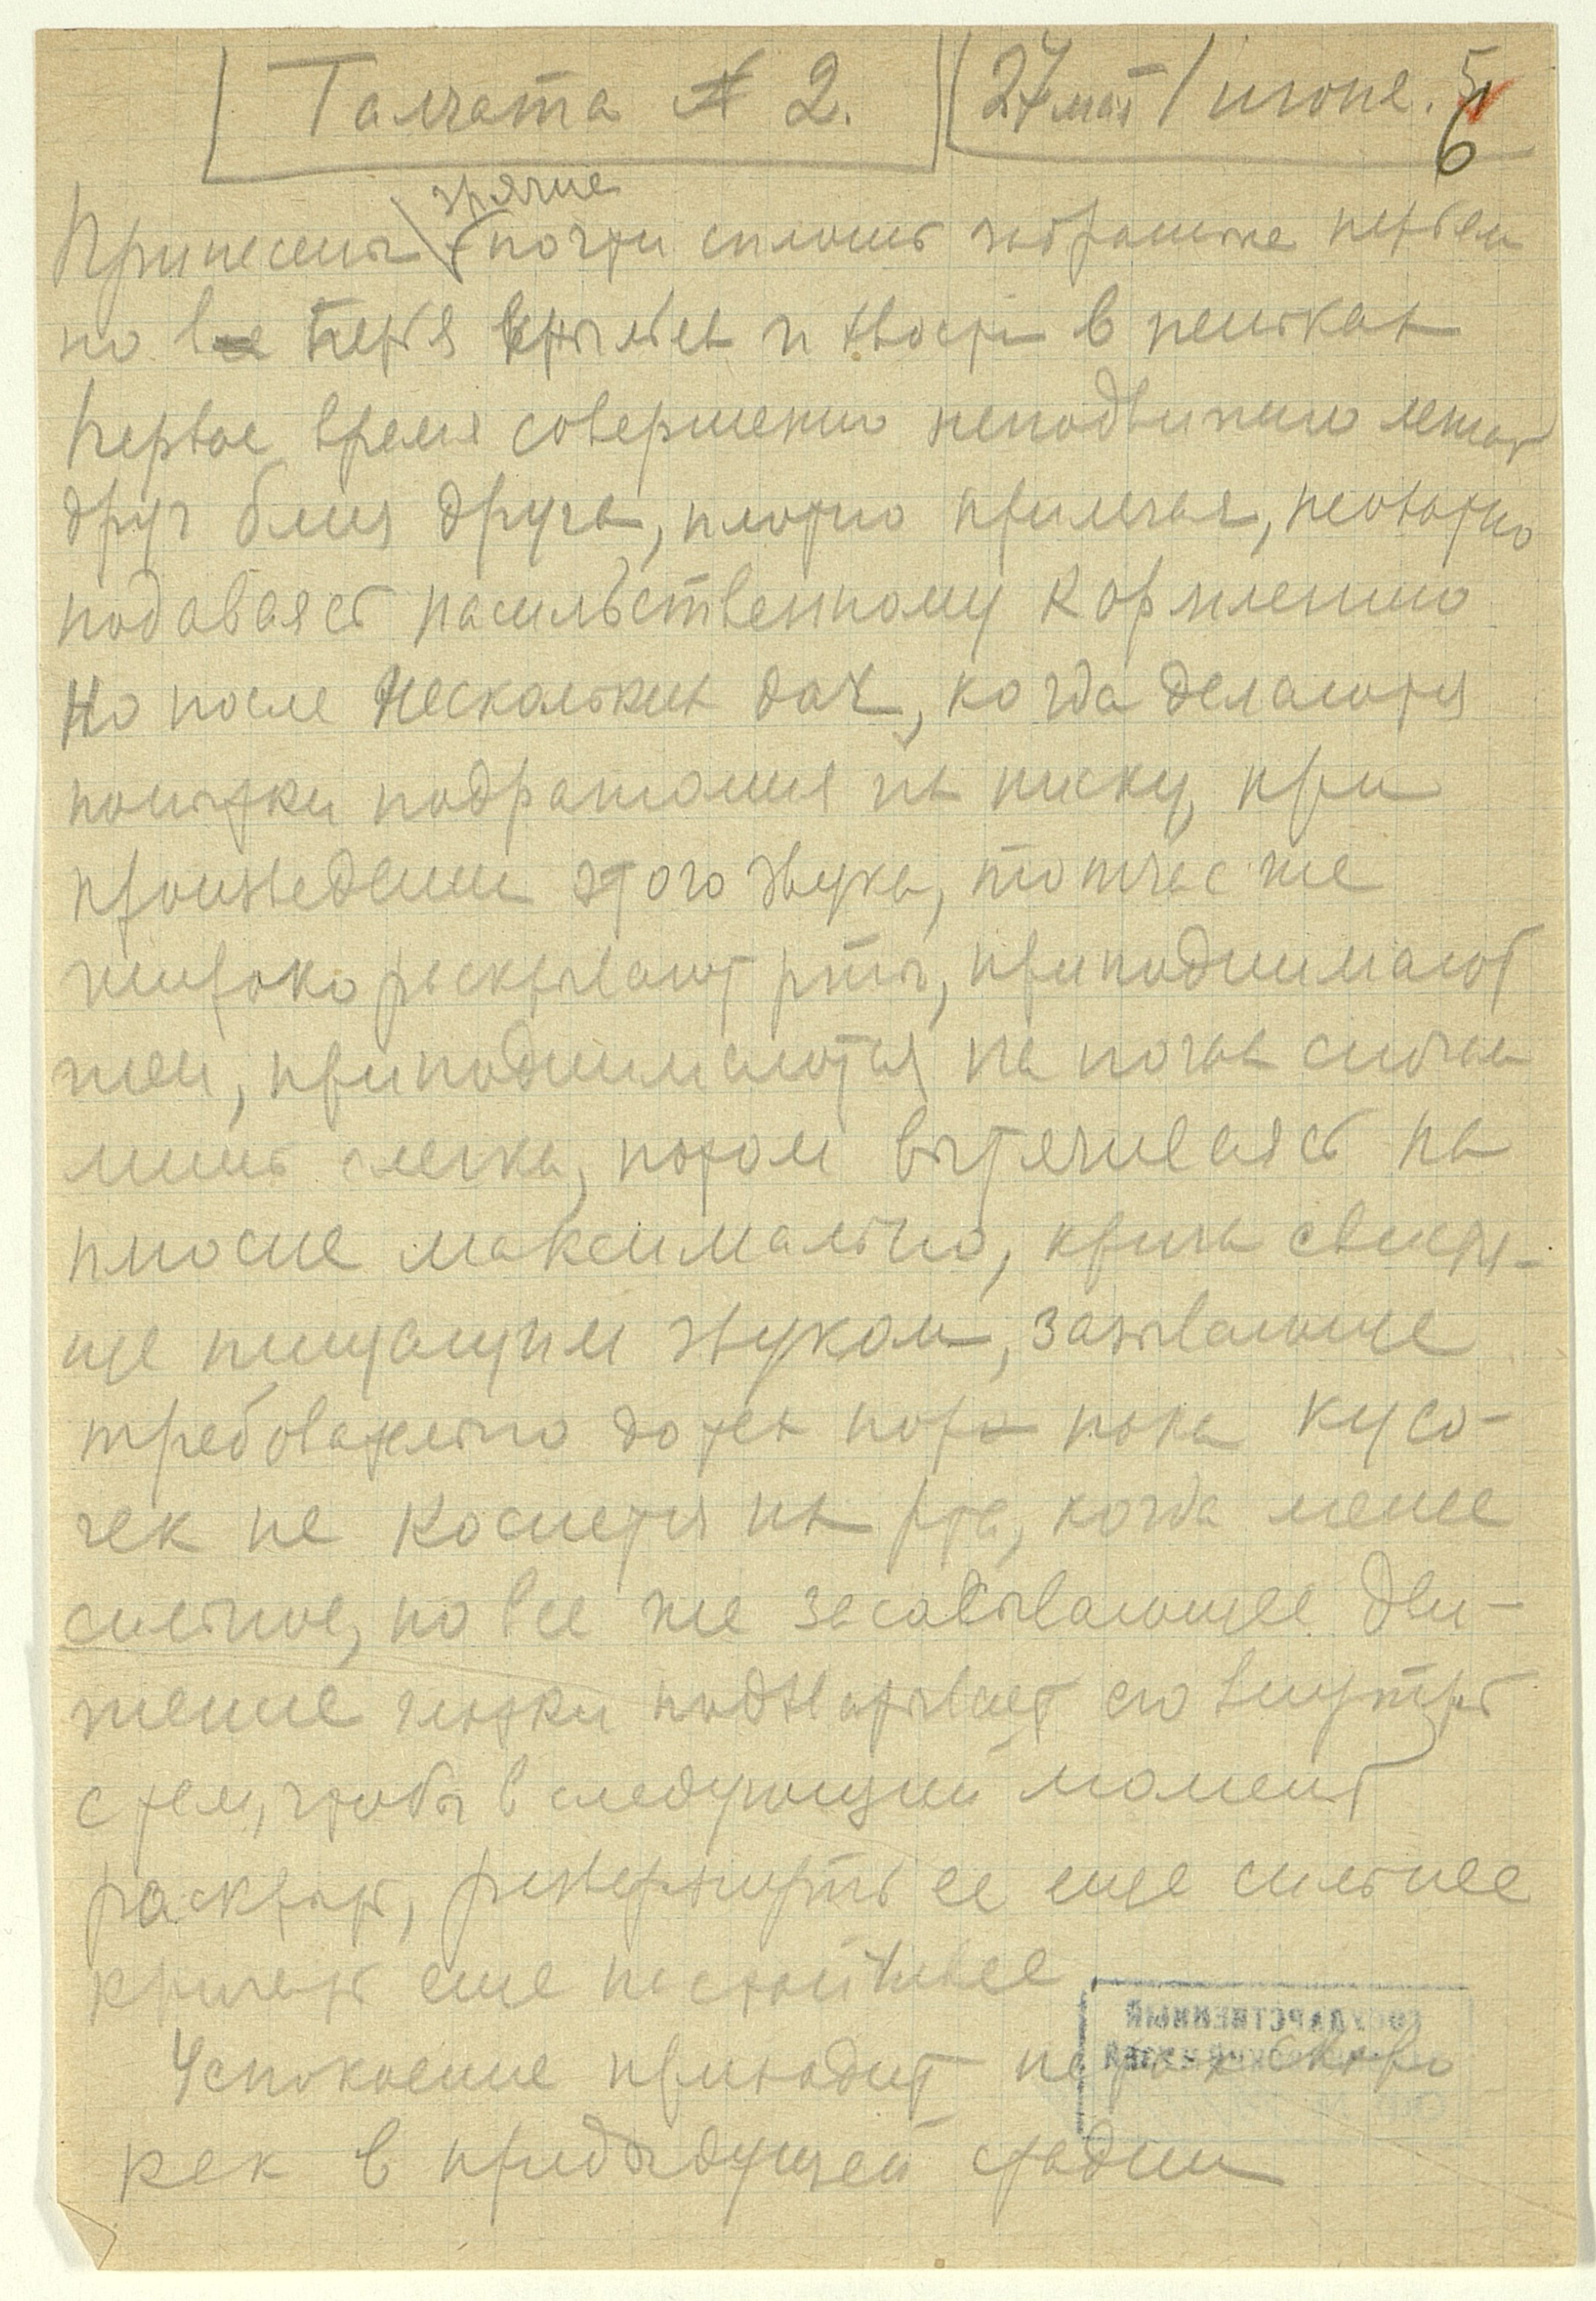 Галчата № 2. 27 мая / июне. 5
6
зрячие
Принесены почти сплошь заброшке перьем
но все перья крыльев и хвоста в пеньках
Первое время совершенно неподвижно лежат
друг близ друга, плотно прилегая, неохотно
подаваясь насильственному кормлению
Но после нескольких дач, когда делаются
попытки подражания их писку, при
произведении этого звука, тотчас же
широко раскрывают рты, приподнимают
шеи, приподнимаются на ногах сначала
лишь слегка, потом вытягиваясь на
плюсне максимально, крича свистя-
ще пищащим звуком, зазывающе
требовательно до тех пор пока кусо-
чек не коснется их рта, когда менее
сильное, но все же засасывающее дви-
жение глотки подхватывает его внутрь
с тем, чтобы в следующий момент
раскрыть, развернуть ее еще сильнее
кричать еще настойчивее
Успокоение приходит не так скоро
как в предыдущей стадии
ГОСУДАРСТВЕННЫЙ